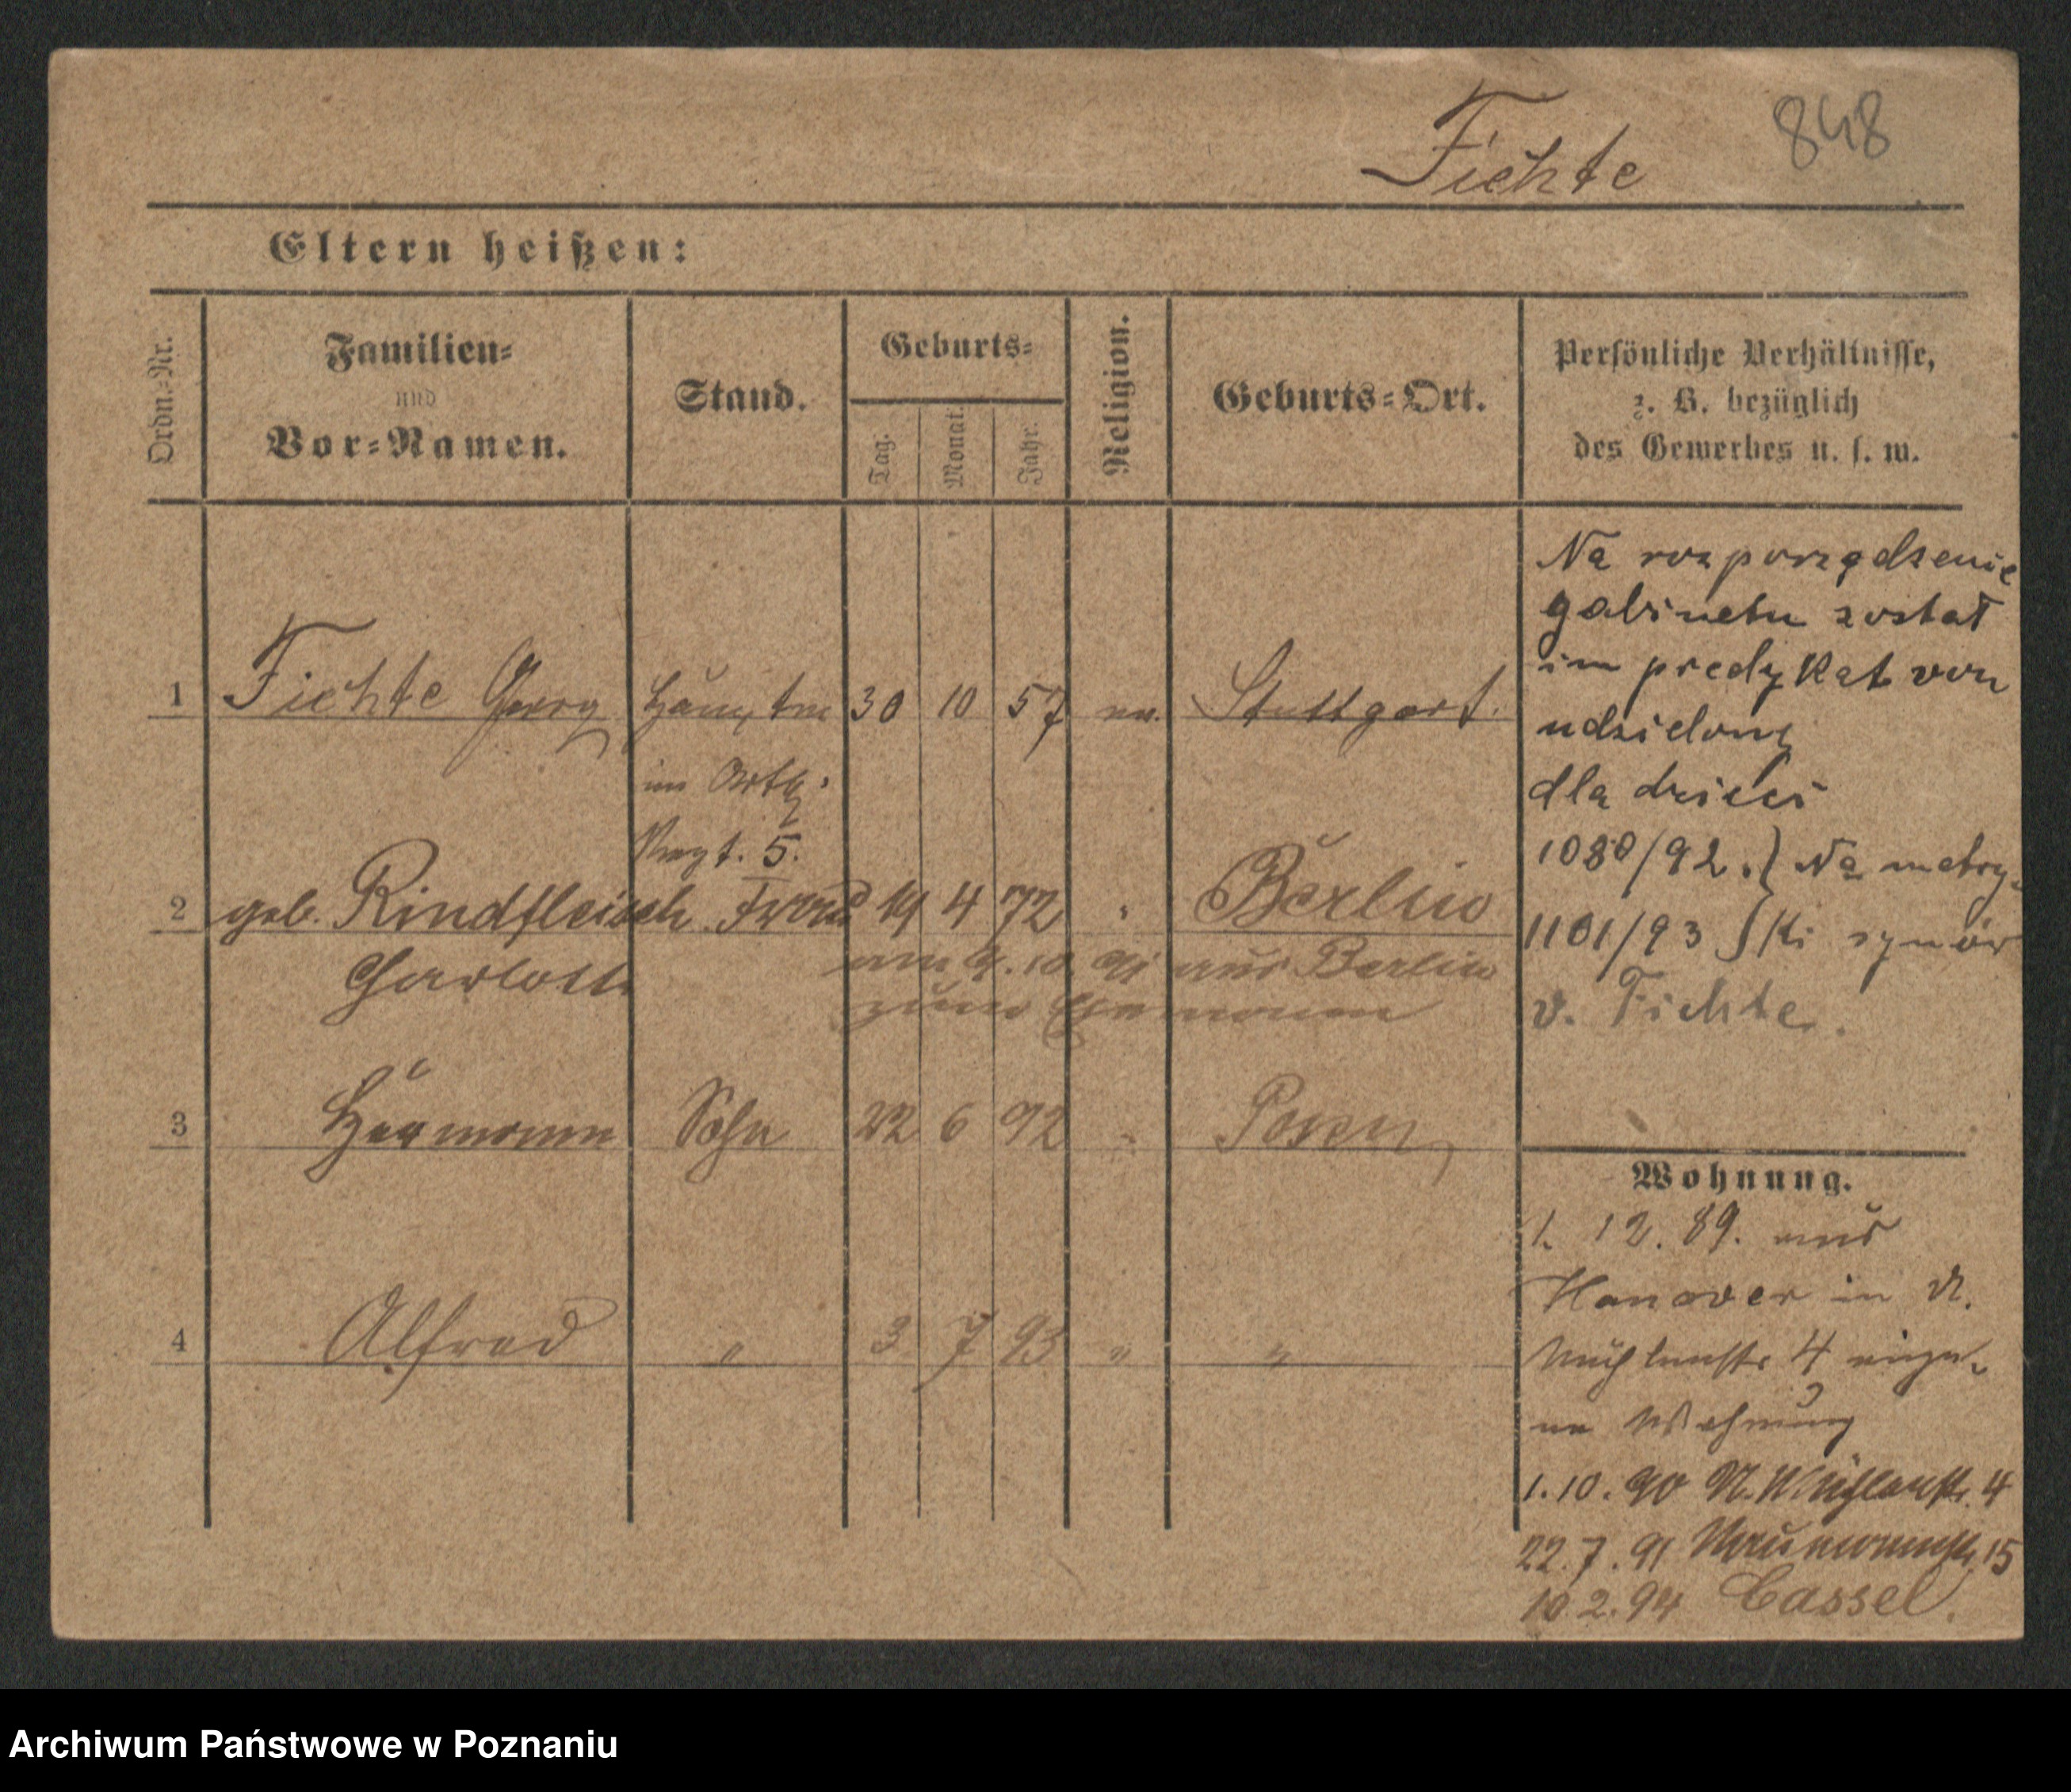 Fichte 848
Eltern heißen:
Ordn.-Nr.
Familien-
und
Vor-Namen.
Stand.
Geburts-
Tag.
Monat.
Jahr.
Religion.
Geburts-Ort.
Persönliche Verhältnisse,
z. B. bezüglich
des Gewerbes u. s. w.
1 Fichte Georg Hauptm 30 10 57 ev. Stuttgart.
im
Regt. 5.
2 geb. Rindfleisch Frau 19 4 72 " Berlin
Charlotte
am 9.10.91 aus Berlin
zum
3 Hermann Sohn 22 6 92 " Posen
4 Alfred " 3 7 93 " "
Na rozporządzenie
gabinetu został
im predykat von
udzielony
dla dzieci
1080/92.} Na metry-
1101/93 } ki synów
v. Fichte.
Wohnung.
1. 12. 89. aus
Hanover in N.
Mühlenstr 4 eige-
ne Wohnung
1.10.90 N. Mühlenstr. 4
22.7.91 Naumannstr. 15
10.2.94 Cassel.
Archiwum Państwowe w Poznaniu